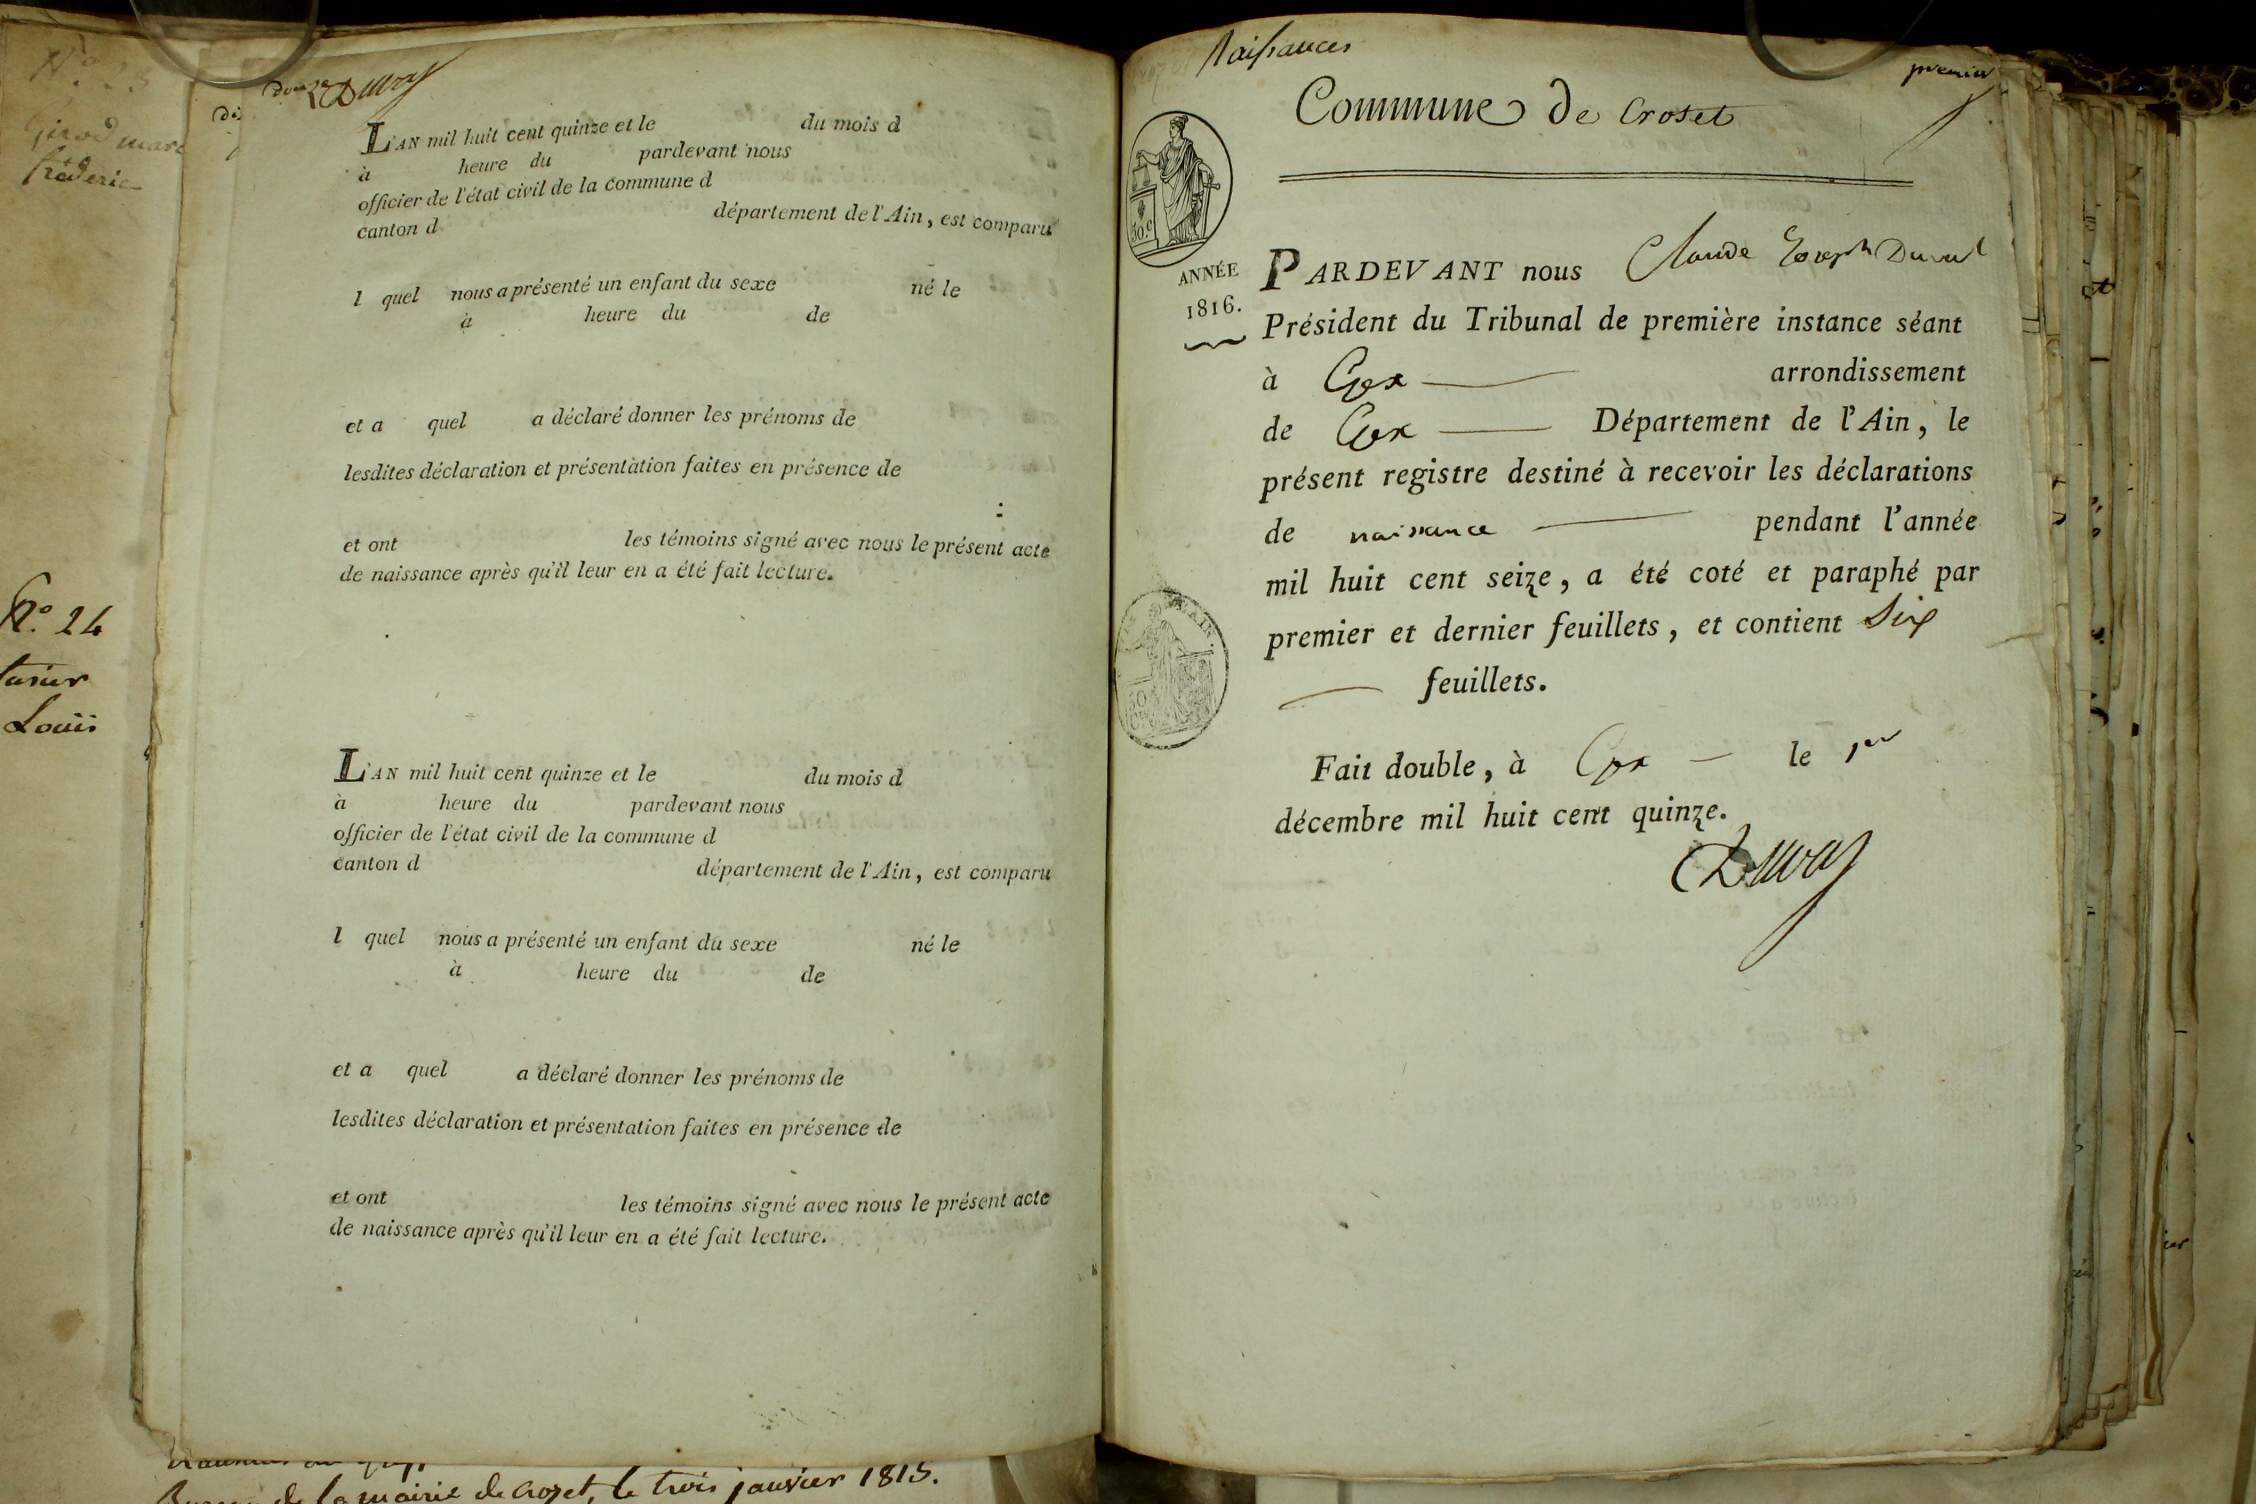 N.° 23
Girod marc
frédéric
N.° 24
Louis
douze Duval
L'AN mil huit cent quinze et le du mois d
à heure du pardevant nous
officier de l'état civil de la commune d
canton d département de l'Ain, est comparu
l quel nous a présenté un enfant du sexe né le
à heure du de
et a quel a déclaré donner les prénoms de
lesdites déclaration et présentation faites en présence de
et ont les témoins signé avec nous le présent acte
de naissance après qu'il leur en a été fait lecture.
L'AN mil huit cent quinze et le du mois d
à heure du pardevant nous
officier de l'état civil de la commune d
canton d département de l'Ain, est comparu
l quel nous a présenté un enfant du sexe né le
à heure du de
et a quel a déclaré donner les prénoms de
lesdites déclaration et présentation faites en présence de
et ont les témoins signé avec nous le présent acte
de naissance après qu'il leur en a été fait lecture.
Bureau de la mairie de Crozet, le trois janvier 1815.
Naissances
premier
Commune de Croset
30.c
ANNÉE
1816.
PARDEVANT nous Claude Joseph Duval
Président du Tribunal de première instance séant
à Gex arrondissement
de Gex Département de l'Ain, le
présent registre destiné à recevoir les déclarations
de naissance pendant l'année
mil huit cent seize, a été coté et paraphé par
premier et dernier feuillets, et contient Six
feuillets.
Fait double, à Gex le 1er
décembre mil huit cent quinze.
Duval